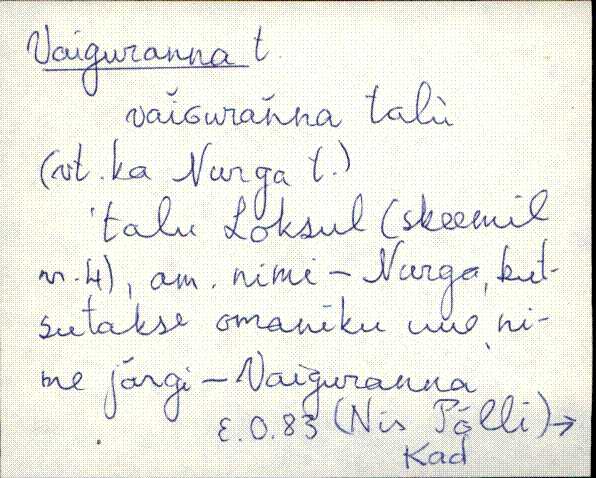 Vaiguranna t.
vaiguranna talù
(vt. ka Nurga t.)
talu Loksul (skeemil
nr. 4), am. nimi – Nurga, kut-
sutakse omaniku uue ni-
me järgi – Vaiguranna
E.O. 83 (Nis Põlli) →
Kad